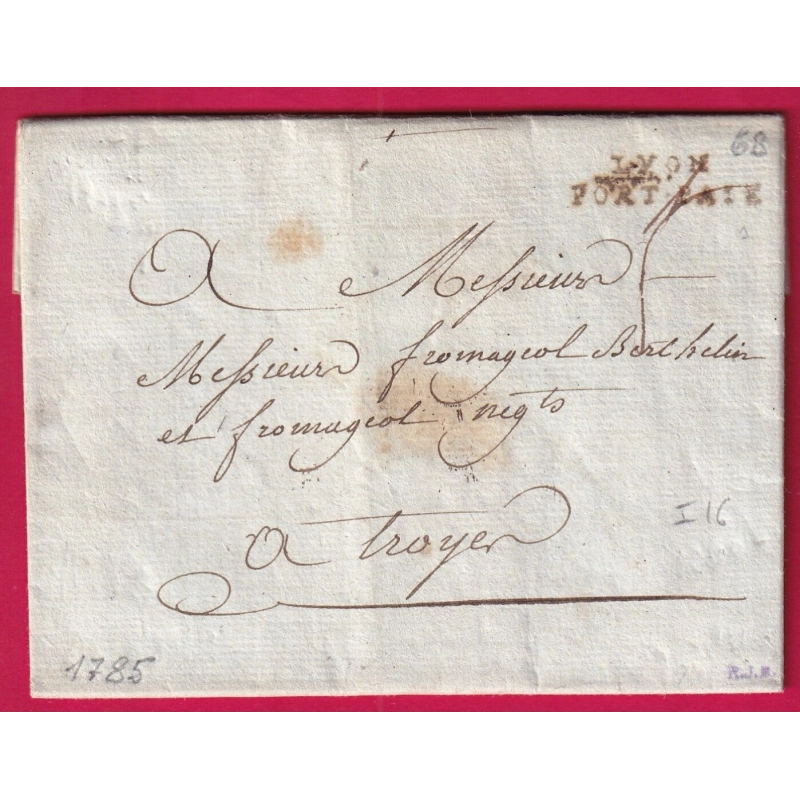 68
LYON
PORT PAYE
A Messieurs
Messieurs fromageol Berthelin
et fromageol negts
a troyes
I 16
1785